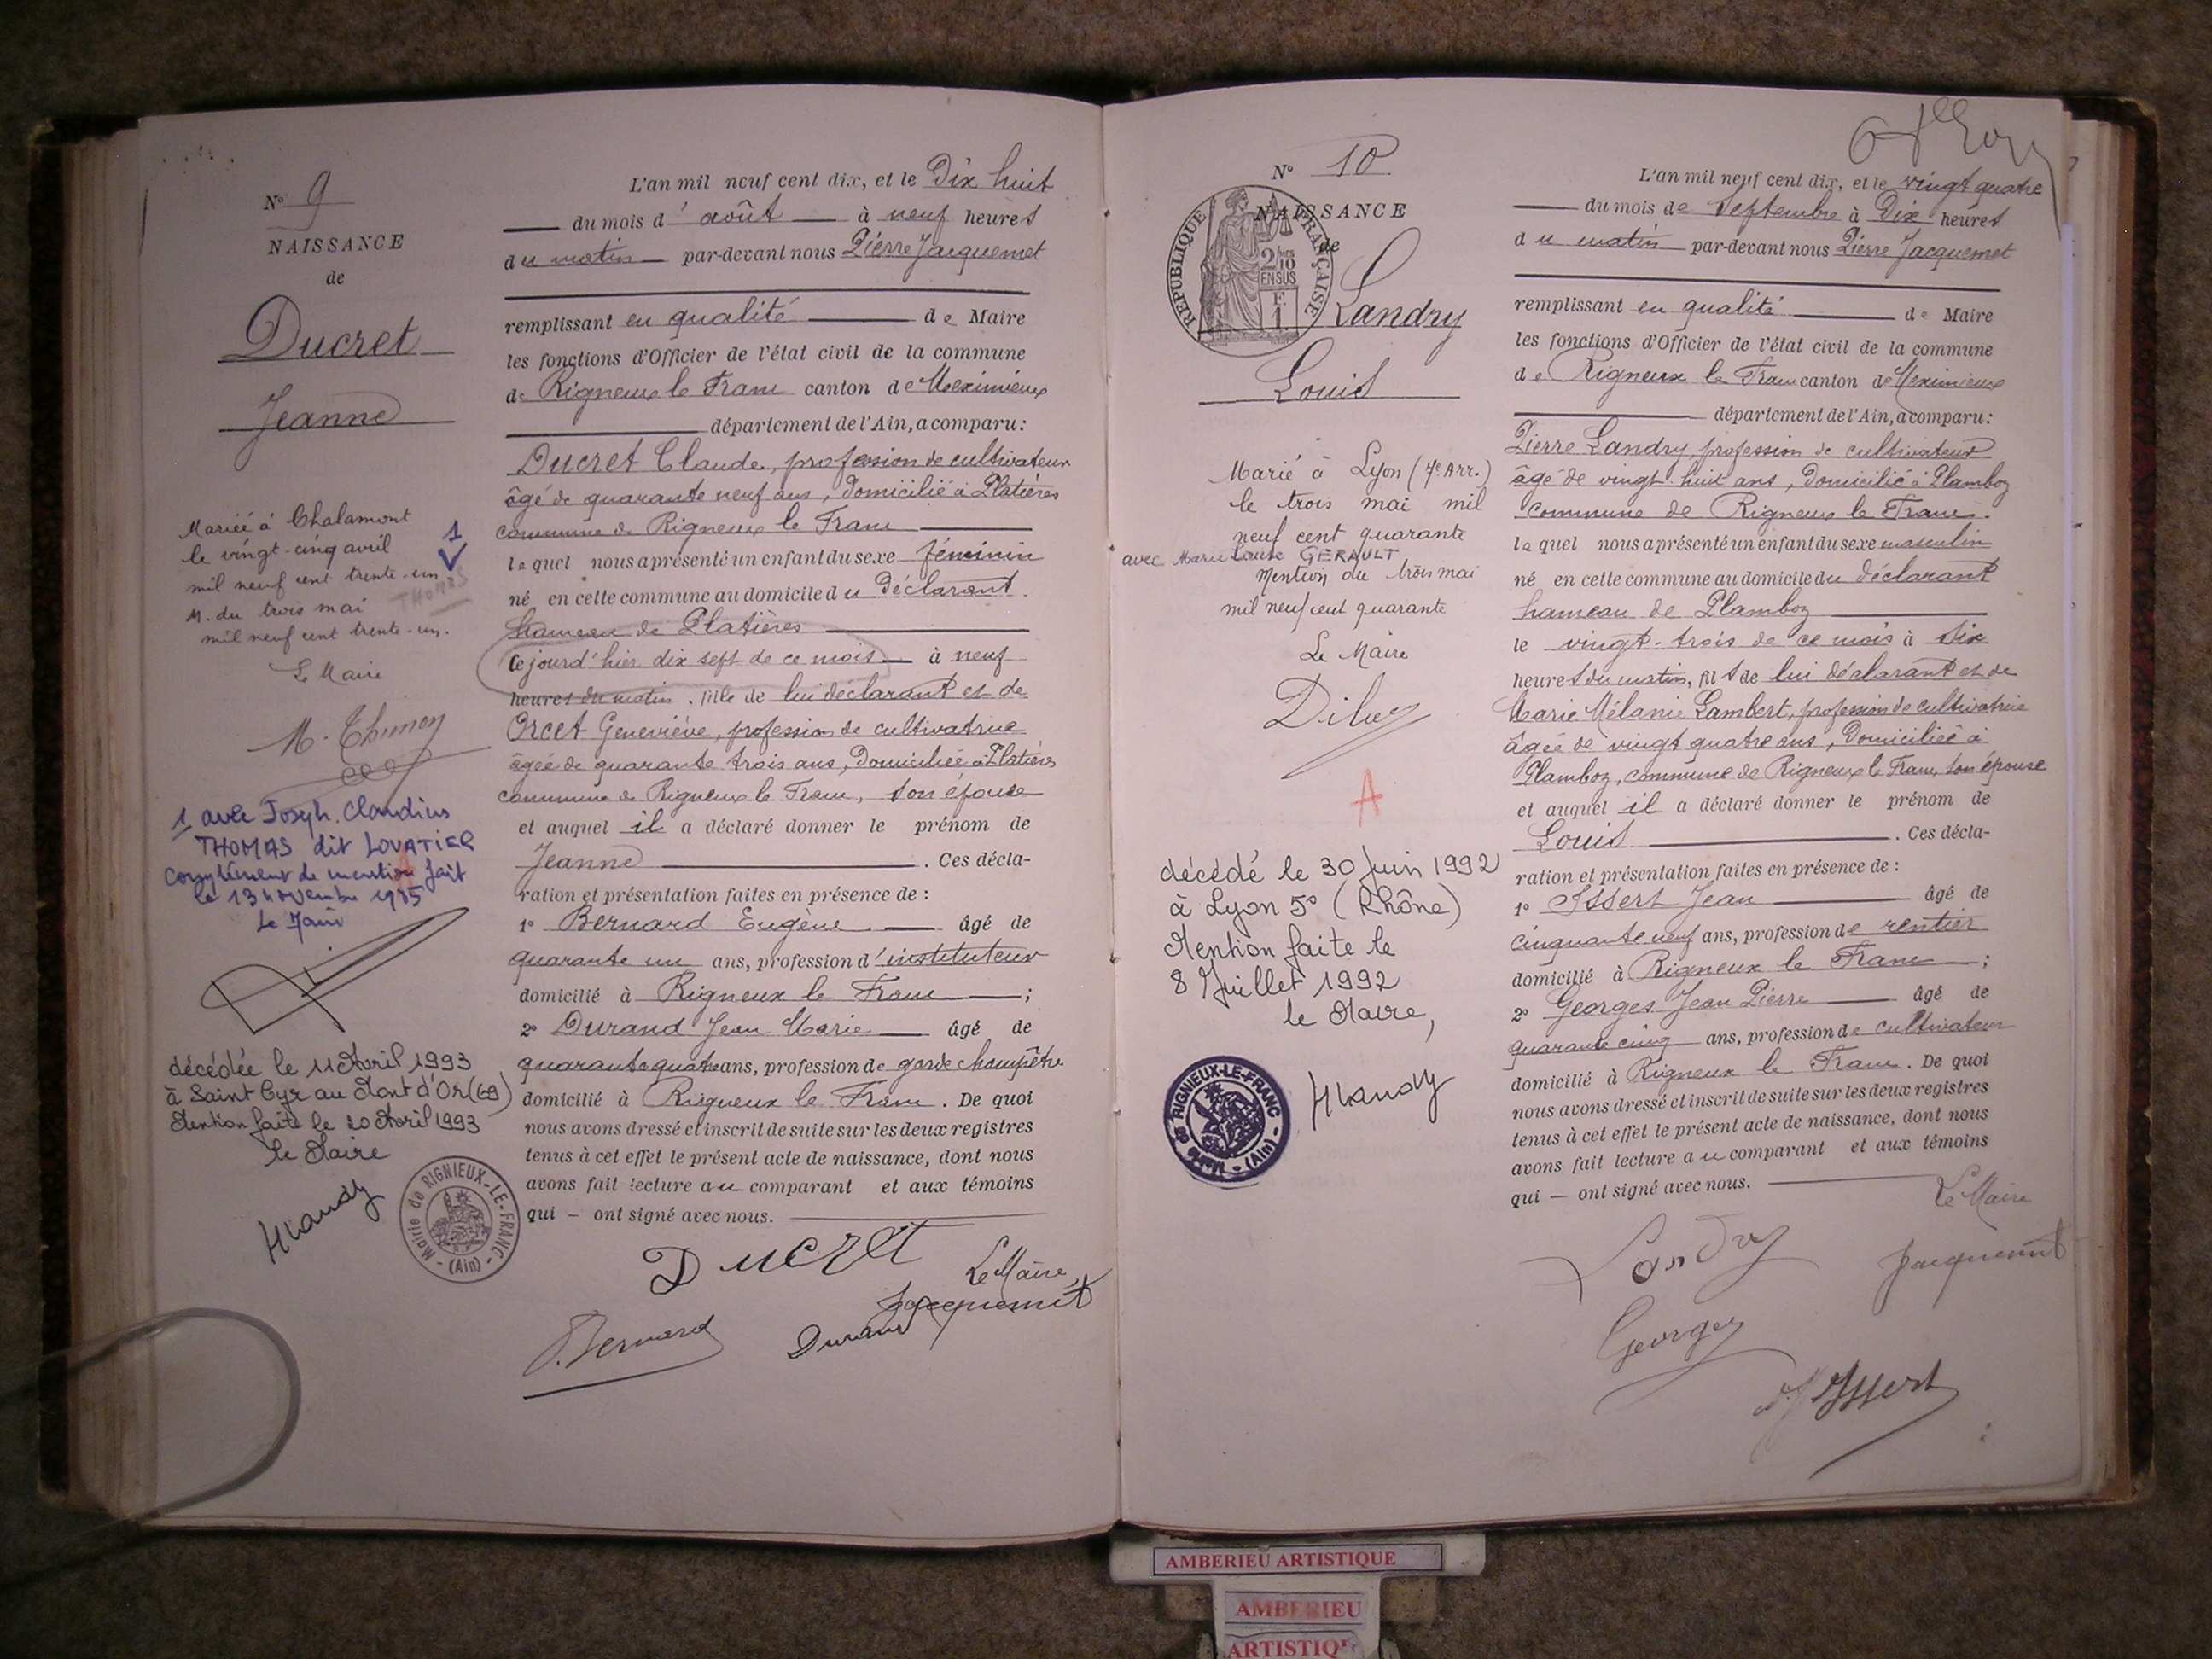 N° 9
NAISSANCE
de
Ducret
Jeanne
Mariéé à Chalamont
le vingt-cinq avril
mil neuf cent trente-un
M. du trois mai
mil neuf cent trente-un.
Le Maire
1
THOMAS
1 avec Joseph. Claudius
THOMAS dit LOVATIER
complément de mention fait
le 13 novembre 1985
Le Maire
décédée le 11 Avril 1993
à Saint Cyr au Mont d'Or (69)
Mention faite le 20 Avril 1993
le Maire
Mairie de RIGNIEUX-LE-FRANC - (Ain) -
L'an mil neuf cent dix, et le Dix huit
du mois d'août à neuf heures
du matin par-devant nous Pierre Jacquemet
remplissant en qualité de Maire
les fonctions d'Officier de l'état civil de la commune
de Rigneux le Franc canton de Meximieux
département de l'Ain, a comparu:
Ducret Claude, profession de cultivateur
âgé de quarante neuf ans, Domicilié à Platières
commune de Rigneux le Franc
lequel nous a présenté un enfant du sexe féminin
né en cette commune au domicile du Déclarant.
hameau de Platières
Cejourd'hier dix sept de ce mois à neuf
heures du matin. fille de lui déclarant et de
Orcet Geneviève, profession de cultivatrice
âgée de quarante trois ans, Domiciliée à Platières
commune de Rigneux le Franc, son épouse
et auquel il a déclaré donner le prénom de
Jeanne . Ces décla-
ration et présentation faites en présence de :
1° Bernard Eugène âgé de
quarante un ans, profession d'instituteur
domicilié à Rigneux le Franc ;
2° Durand Jean Marie âgé de
quarante quatre ans, profession de garde champêtre
domicilié à Rigneux le Franc . De quoi
nous avons dressé et inscrit de suite sur les deux registres
tenus à cet effet le présent acte de naissance, dont nous
avons fait lecture au comparant et aux témoins
qui — ont signé avec nous.
Ducret
Le Maire
Jacquemet
Bernard
Durand
N° 10
NAISSANCE
de
RÉPUBLIQUE FRANÇAISE
2/10
EN SUS
F.
1.
Landry
Louis
Marié à Lyon (7e Arr.)
le trois mai mil
neuf cent quarante
avec Marie Louise GERAULT
Mention du trois mai
mil neuf cent quarante
Le Maire
A
décédé le 30 Juin 1992
à Lyon 5° (Rhône)
Mention faite le
8 Juillet 1992
le Maire,
Mairie de RIGNIEUX-LE-FRANC - (Ain) -
L'an mil neuf cent dix, et le vingt quatre
du mois de Septembre à Dix heures
du matin par-devant nous Pierre Jacquemet
remplissant en qualité de Maire
les fonctions d'Officier de l'état civil de la commune
de Rigneux le Franc canton de Meximieux
département de l'Ain, a comparu:
Pierre Landry, profession de cultivateur
âgé de vingt huit ans, Domicilié à Plamboz
commune de Rigneux le Franc.
lequel nous a présenté un enfant du sexe masculin
né en cette commune au domicile du déclarant
hameau de Plamboz
le vingt-trois de ce mois à six
heures du matin, fils de lui déclarant et de
Marie Mélanie Lambert, profession de cultivatrice
âgée de vingt quatre ans, Domiciliée à
Plamboz, commune de Rigneux le Franc, son épouse
et auquel il a déclaré donner le prénom de
Louis . Ces décla-
ration et présentation faites en présence de :
1° Issert Jean âgé de
cinquante neuf ans, profession de rentier
domicilié à Rigneux le Franc ;
2° Georges Jean Pierre âgé de
quarante cinq ans, profession de cultivateur
domicilié à Rigneux le Franc . De quoi
nous avons dressé et inscrit de suite sur les deux registres
tenus à cet effet le présent acte de naissance, dont nous
avons fait lecture au comparant et aux témoins
qui — ont signé avec nous.
Le Maire
Landry
Jacquemet
Georges
Issert
AMBERIEU ARTISTIQUE
AMBERIEU
ARTISTIQ